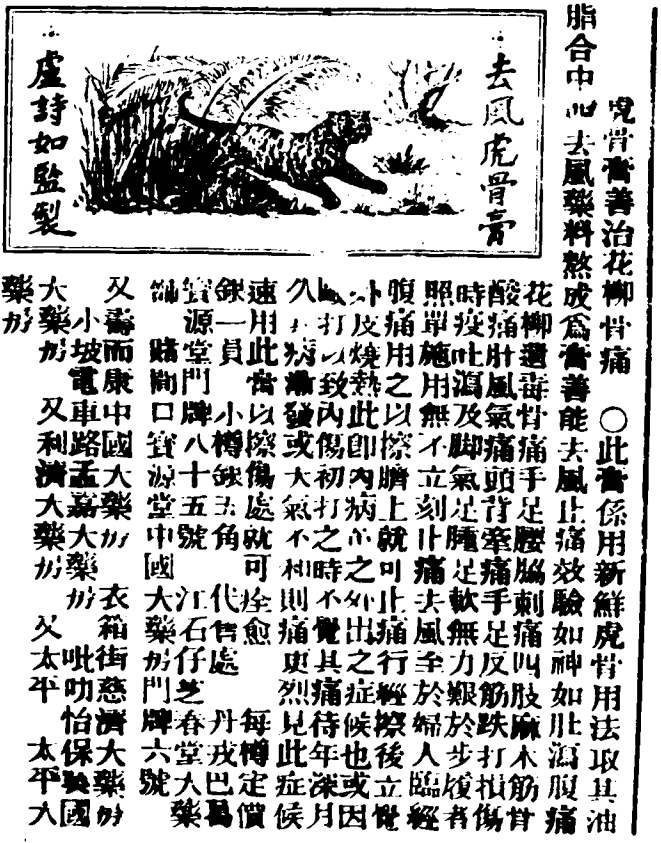 去風虎骨膏
盧詩如監製
虎骨膏善治花柳骨痛　○此膏係用新鮮虎骨用法取其油
脂合中西去風藥料熬成爲膏善能去風止痛效驗如神如肚瀉腹痛
花柳遺毒骨痛手足腰脇刺痛四肢麻木筋骨
酸痛肝風氣痛頭背牽痛手足反筋跌打損傷
時疫吐瀉及脚氣足腫足軟無力艱於步履者
照單施用無不立刻止痛去風至於婦人臨經
腹痛用之以擦臍上就可止痛行經擦後立覺
外皮燒熱此卽內病之外出之症候也或因
打以致內傷初打之時不覺其痛待年深月
久病漸發或大氣不和則痛更烈見此症候
速用此膏以擦傷處就可痊愈　每樽定價
銀一員　小樽銀五角　代售處　丹戎巴葛
寶源堂門牌八十五號　江石仔芝春堂大藥
舖　賭間口寶源堂中國大藥房門牌六號
又壽而康中國大藥房　衣箱街慈濟大藥房
小坡電車路孟嘉大藥房　吡叻怡保英國
大藥房　又利濟大藥房　又太平　太平大
藥房